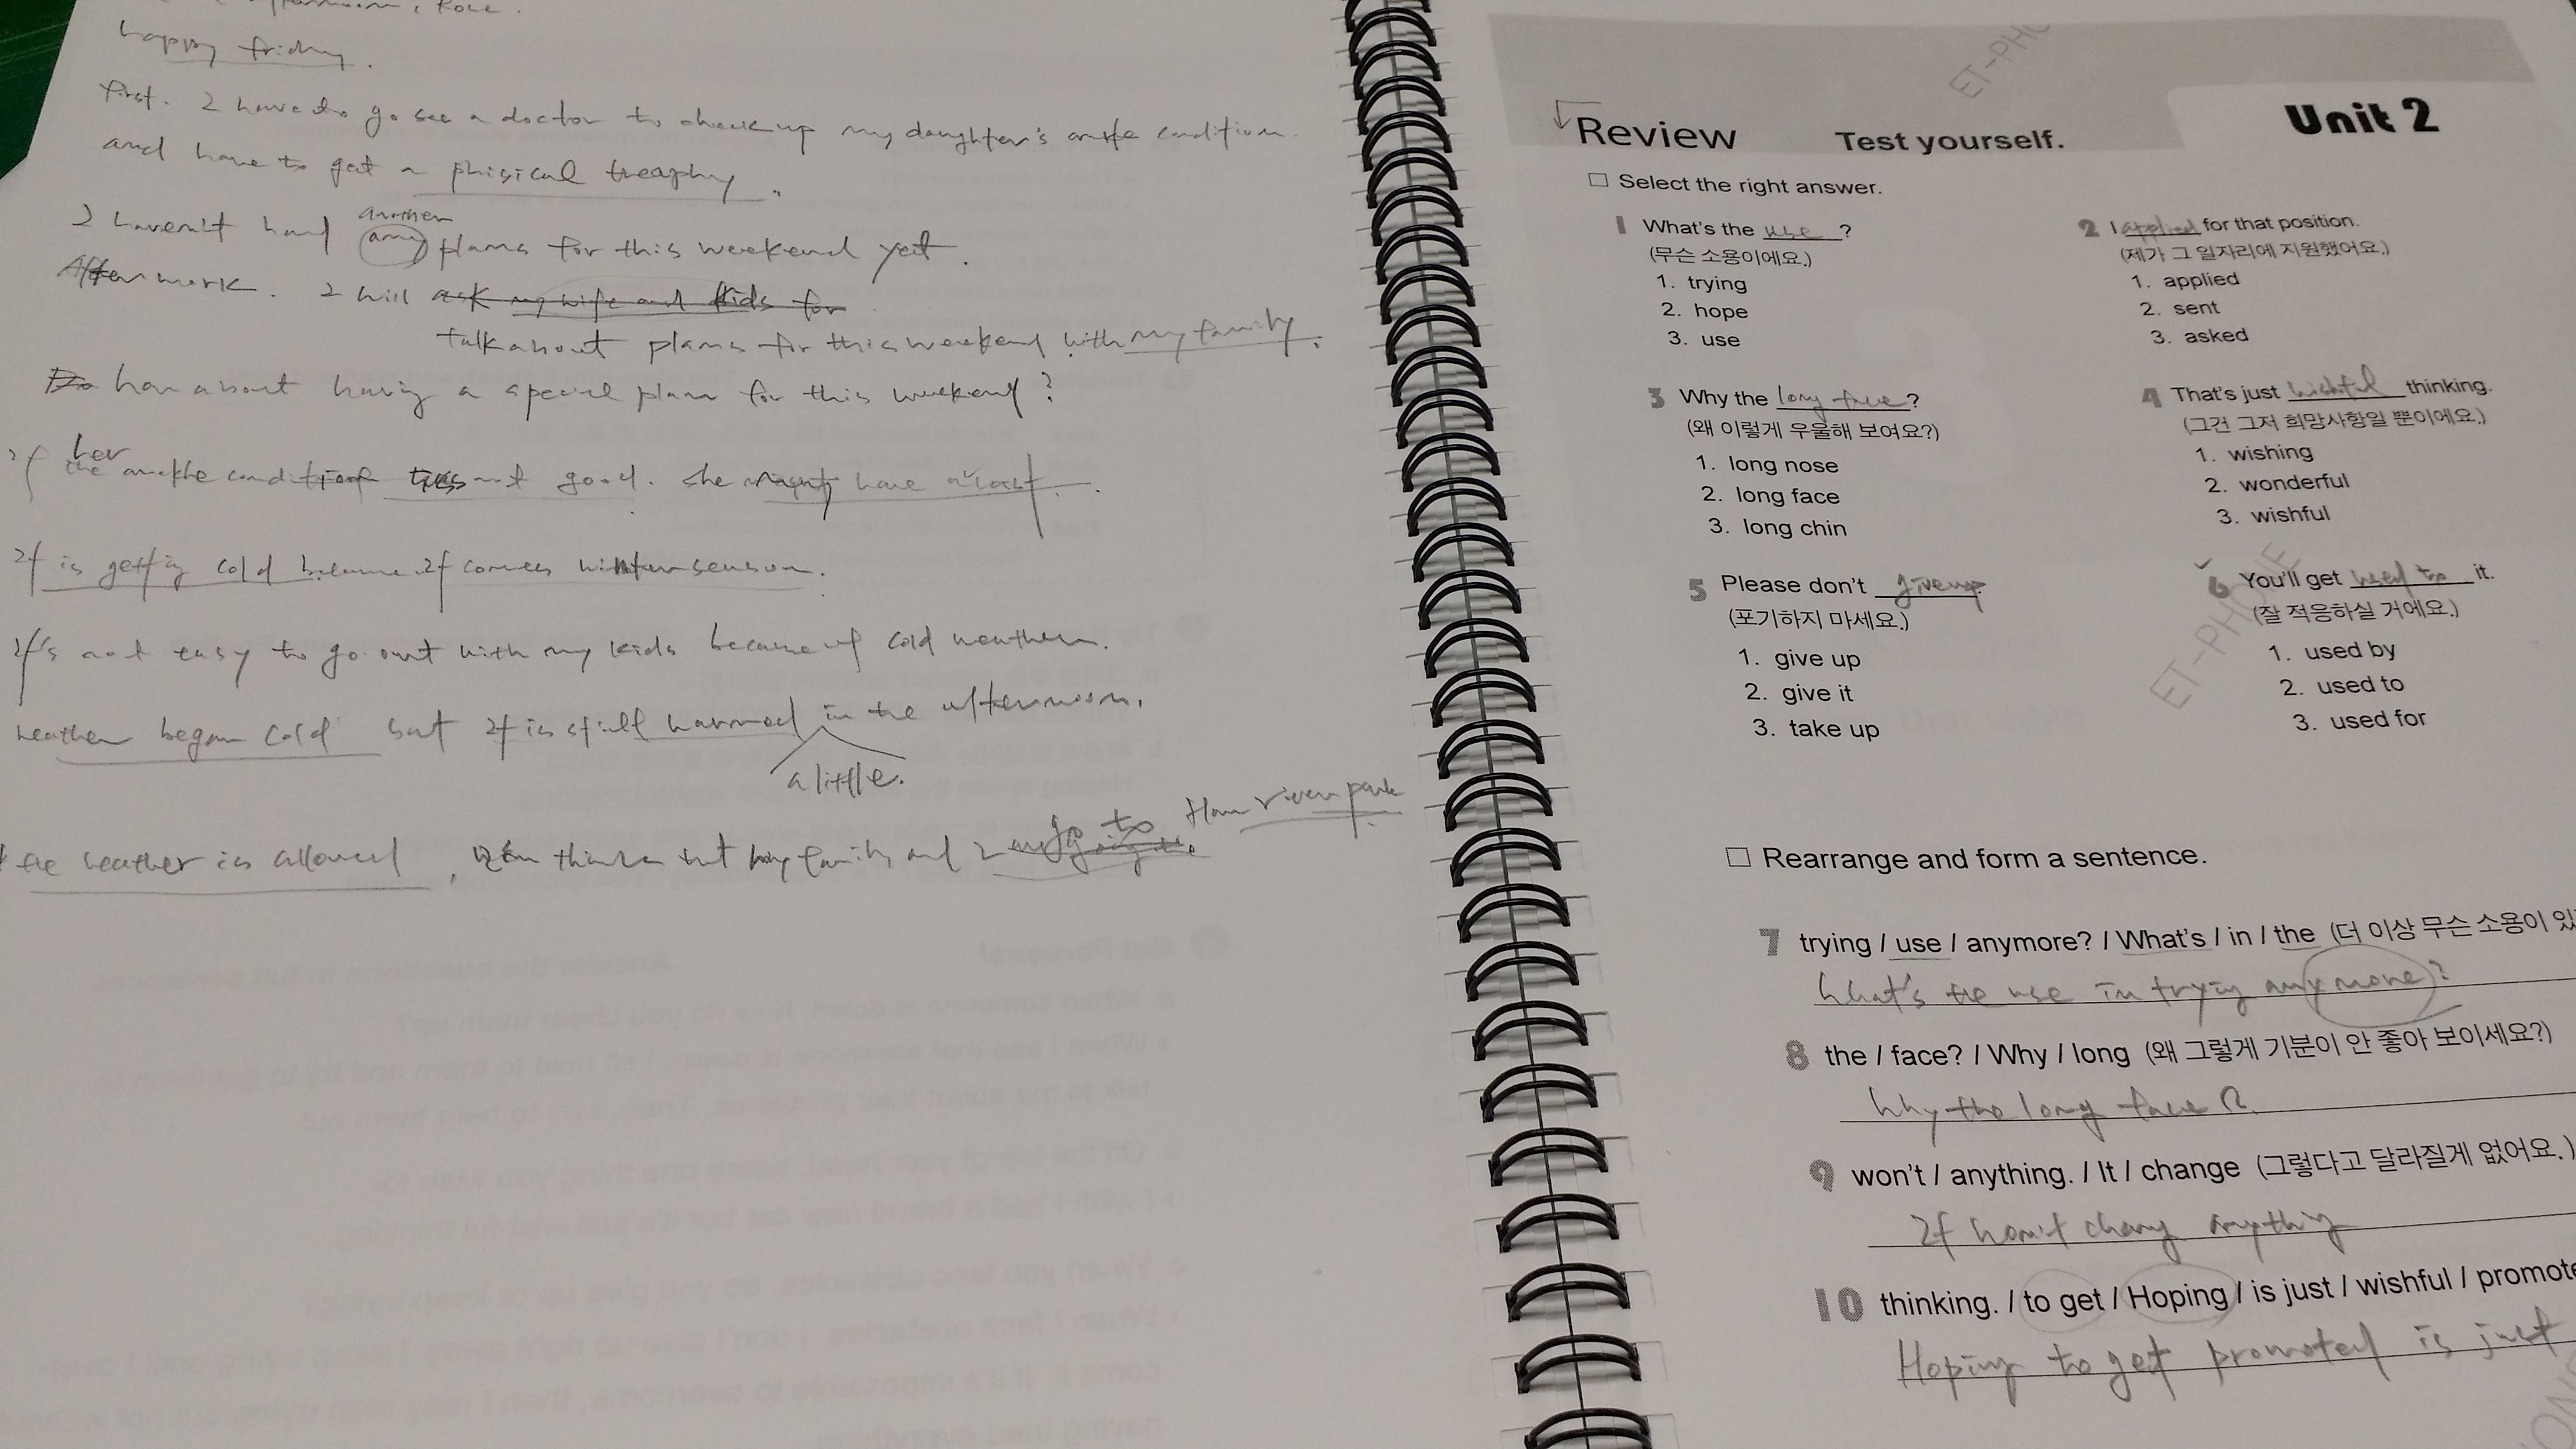 happy friday.
First. I have to go see a doctor to check up my daughter's ankle condition.
and have to get a phisical treaphy.
another
I haven't had any plans for this weekend yet.
After work. I will ask my wife and kids for
talk about plans for this weekend with my family.
Do how about having a special plan for this weekend?
her
If the ankle condition is not good. she might have a cast.
It is getting cold because it comes winter season.
It's not easy to go out with my kids because of cold weather.
weather began cold but it is still warmed in the afternoon.
a little.
go to Han river park
the weather is allowed, my family and I
ET-PHO
Review Test yourself. Unit 2
□ Select the right answer.
1 What's the use ?
(무슨 소용이에요.)
1. trying
2. hope
3. use
2 I applied for that position.
(제가 그 일자리에 지원했어요.)
1. applied
2. sent
3. asked
3 Why the long face ?
(왜 이렇게 우울해 보여요?)
1. long nose
2. long face
3. long chin
4 That's just wishful thinking.
(그건 그저 희망사항일 뿐이에요.)
1. wishing
2. wonderful
3. wishful
5 Please don't give up.
(포기하지 마세요.)
1. give up
2. give it
3. take up
6 You'll get used to it.
(잘 적응하실 거에요.)
1. used by
2. used to
3. used for
ET-PHONE
□ Rearrange and form a sentence.
7 trying / use / anymore? / What's / in / the (더 이상 무슨 소용이 있
What's the use in trying anymore?
8 the / face? / Why / long (왜 그렇게 기분이 안 좋아 보이세요?)
Why the long face?
9 won't / anything. / It / change (그렇다고 달라질게 없어요.)
It won't chang anything
10 thinking. / to get / Hoping / is just / wishful / promote
Hoping to get promoted is just